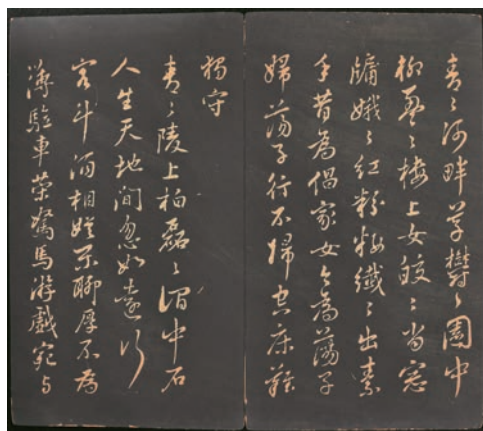 青〻河畔草鬱〻園中
柳盈〻樓上女皎〻當窓
牖娥〻紅粉粧纖〻出素
手昔為倡家女今為蕩子
婦蕩子行不歸空床難
獨守
青〻陵上柏磊〻澗中石
人生天地間忽如遠行
客斗酒相娛樂聊厚不為
薄驅車策駑馬游戲宛与